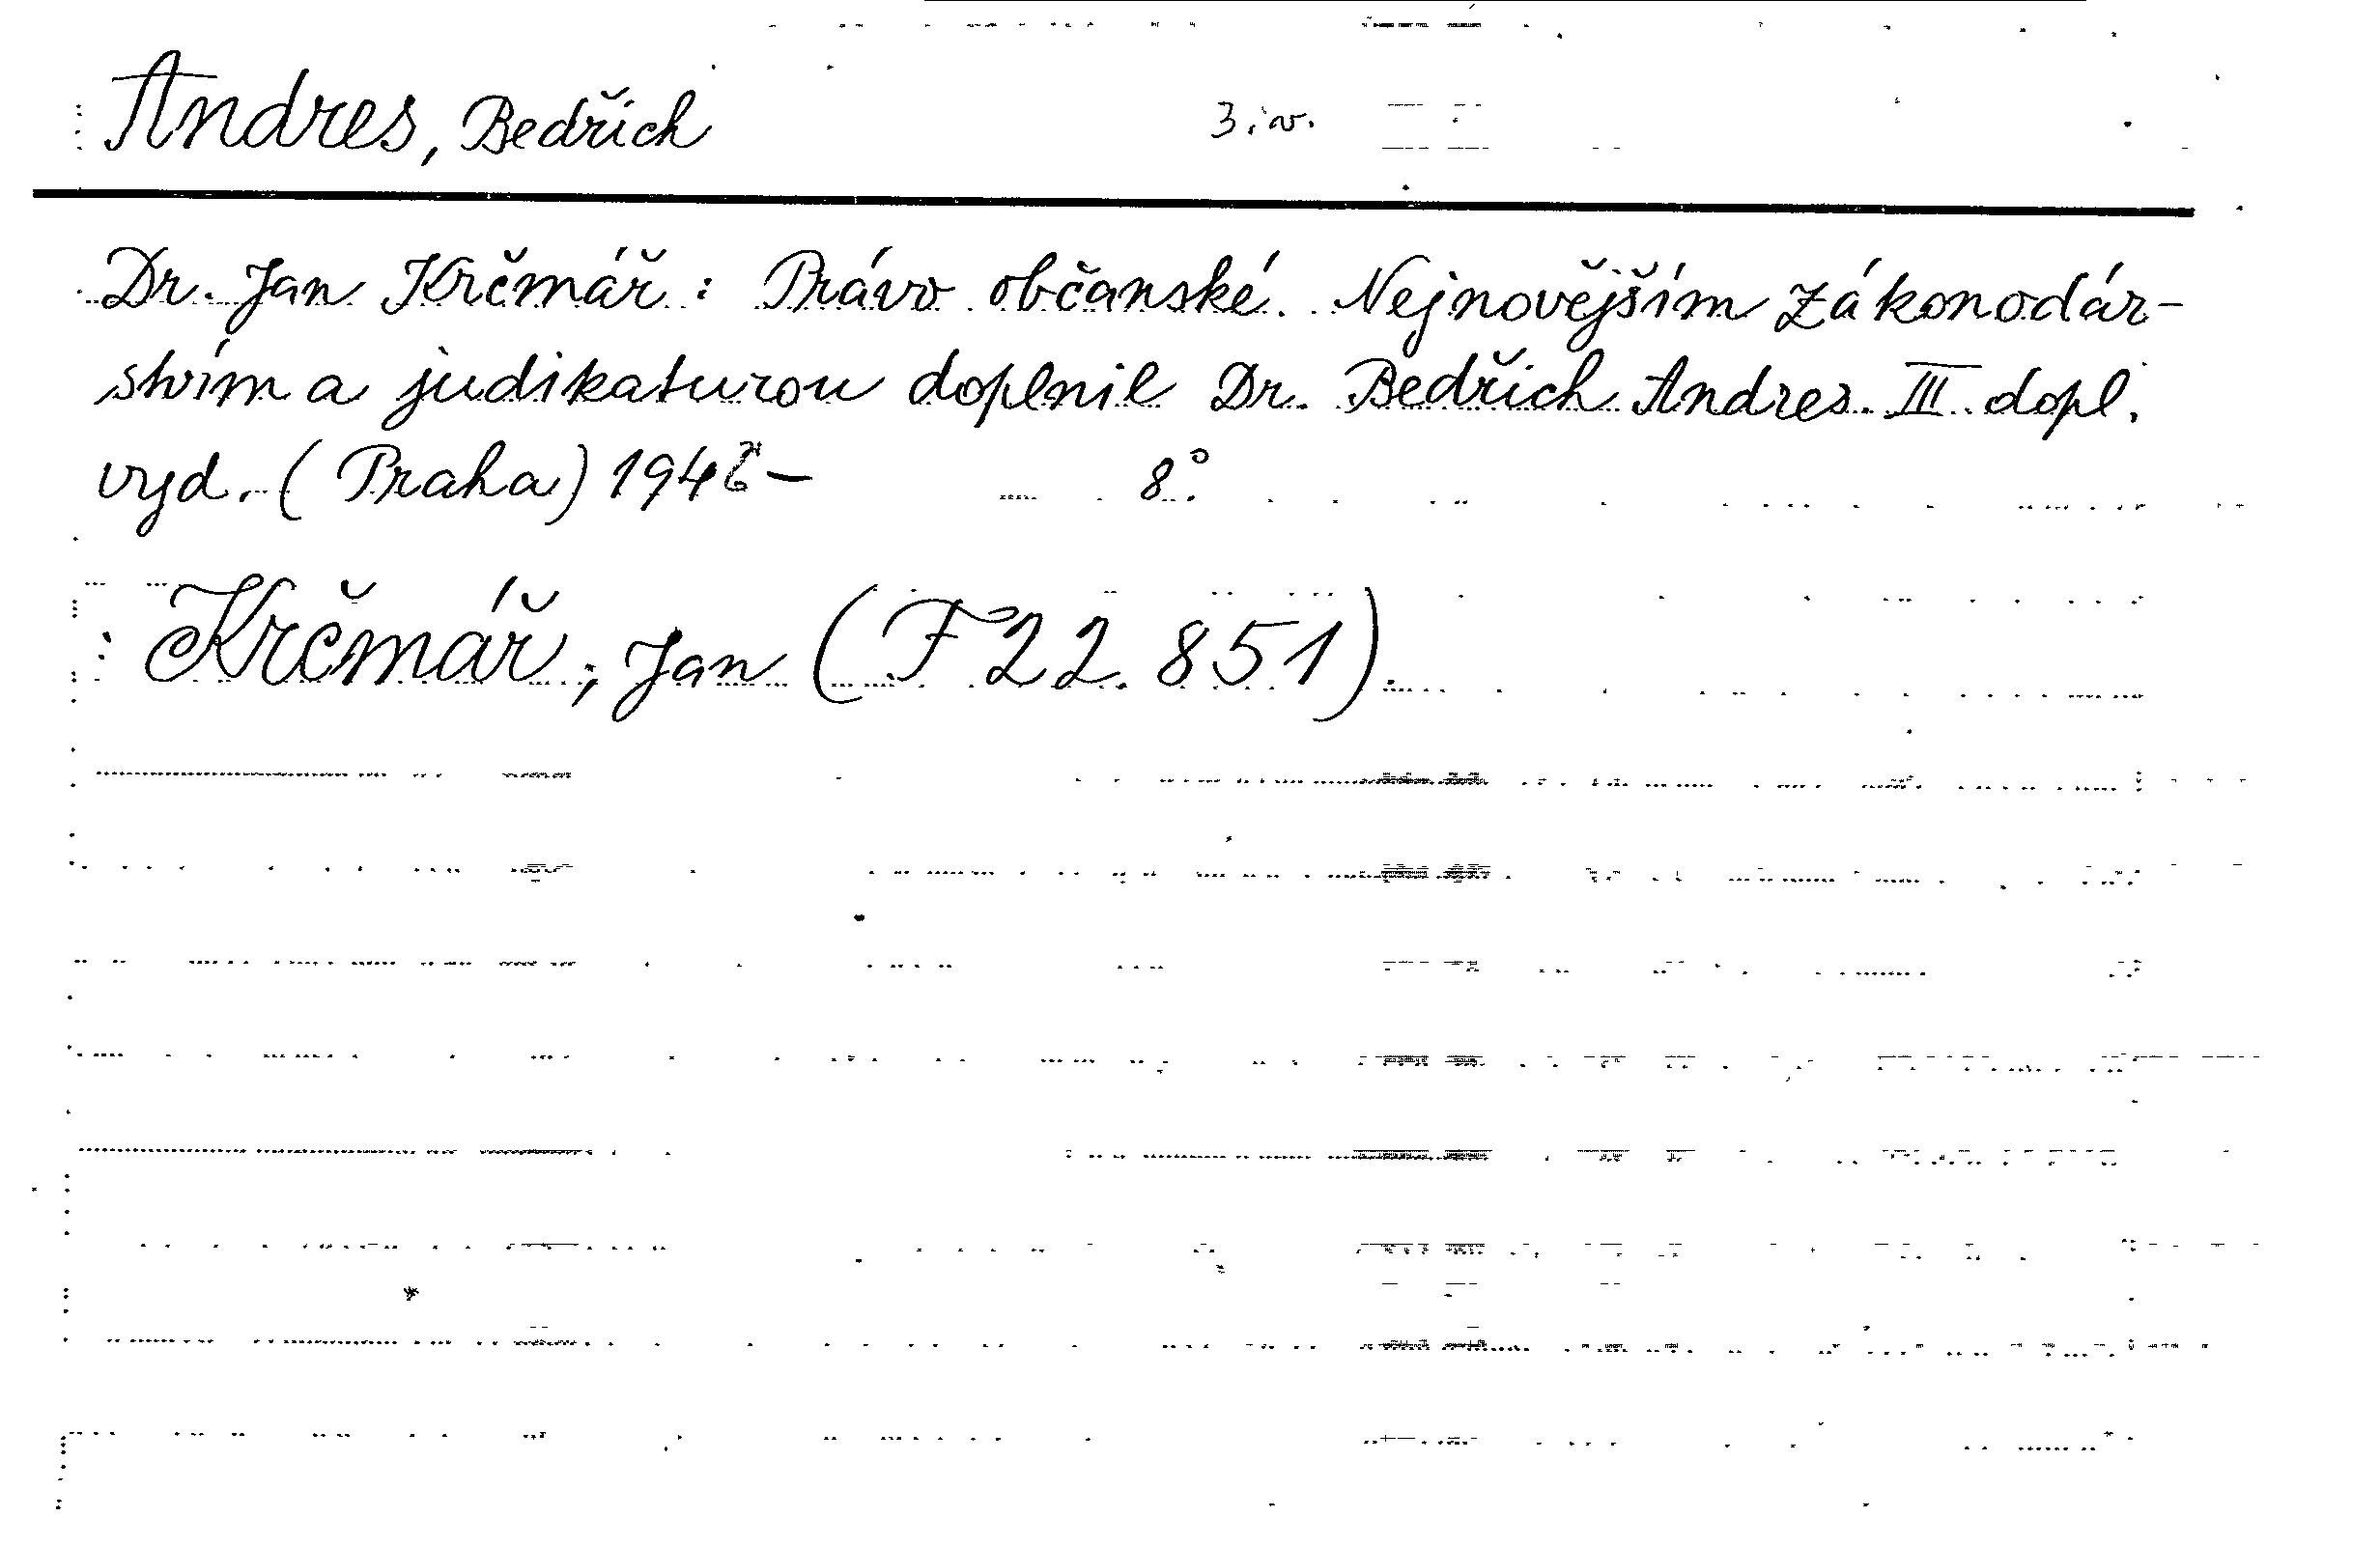 Andres, Bedřich
Dr. Jan Krčmář: Právo občanské. Nejnovějším zákonodár-
stvím a judikaturou doplnil Dr. Bedřich Andres. III dopl.
vyd. (Praha) 1946- 8°.
Krčmář, Jan (F 22.851).